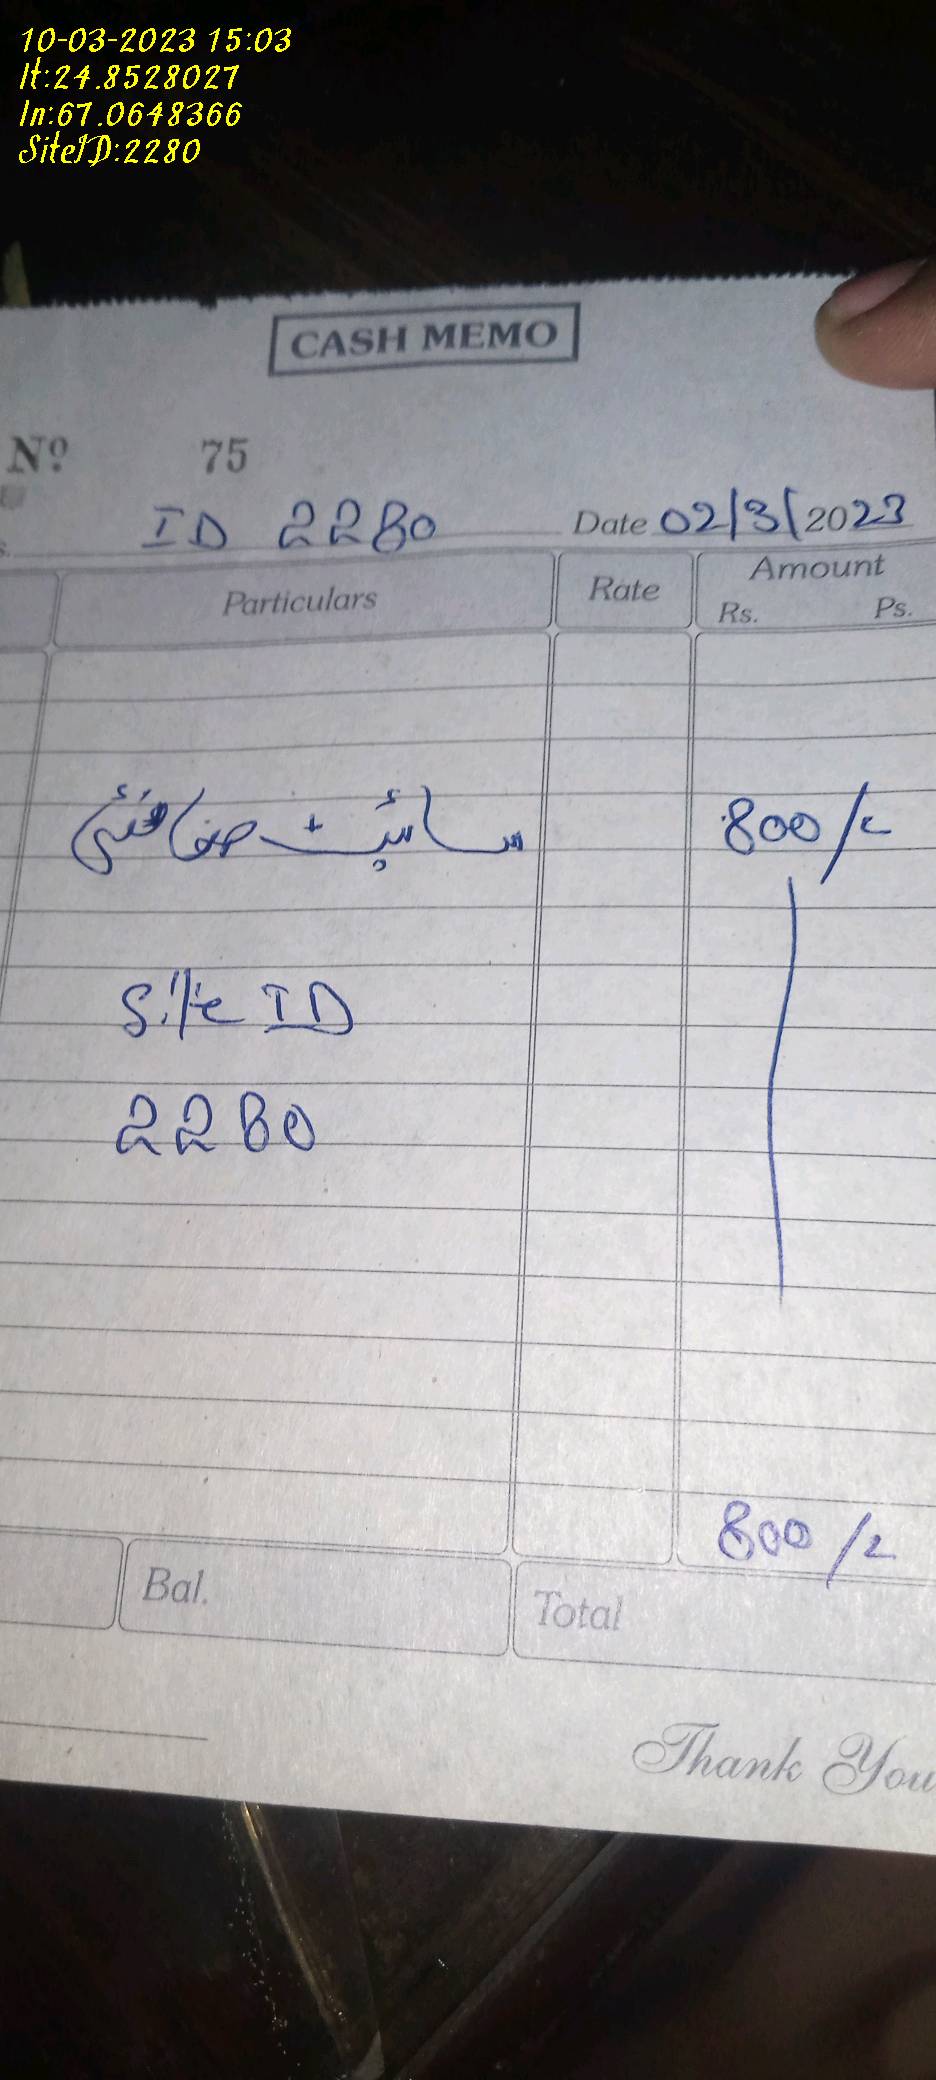 10-03-2023 15:03
lt:24.8528027
ln:67.0648366
SiteID:2280
CASH MEMO
Nº 75
ID 2280 Date 02/3/2023
Particulars Rate Amount
Rs. Ps.
سائیٹ صفائی 800/=
Site ID
2280
800/=
Bal. Total
Thank You